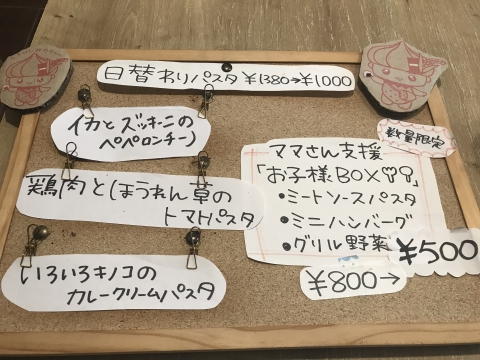 日替わりパスタ ¥1380→¥1000
イカとズッキーニの
ペペロンチーノ
鶏肉とほうれん草の
トマトパスタ
いろいろキノコの
カレークリームパスタ
数量限定
ママさん支援
「お子様BOX♡♡」
・ミートソースパスタ
・ミニハンバーグ
・グリル野菜
¥800→
¥500